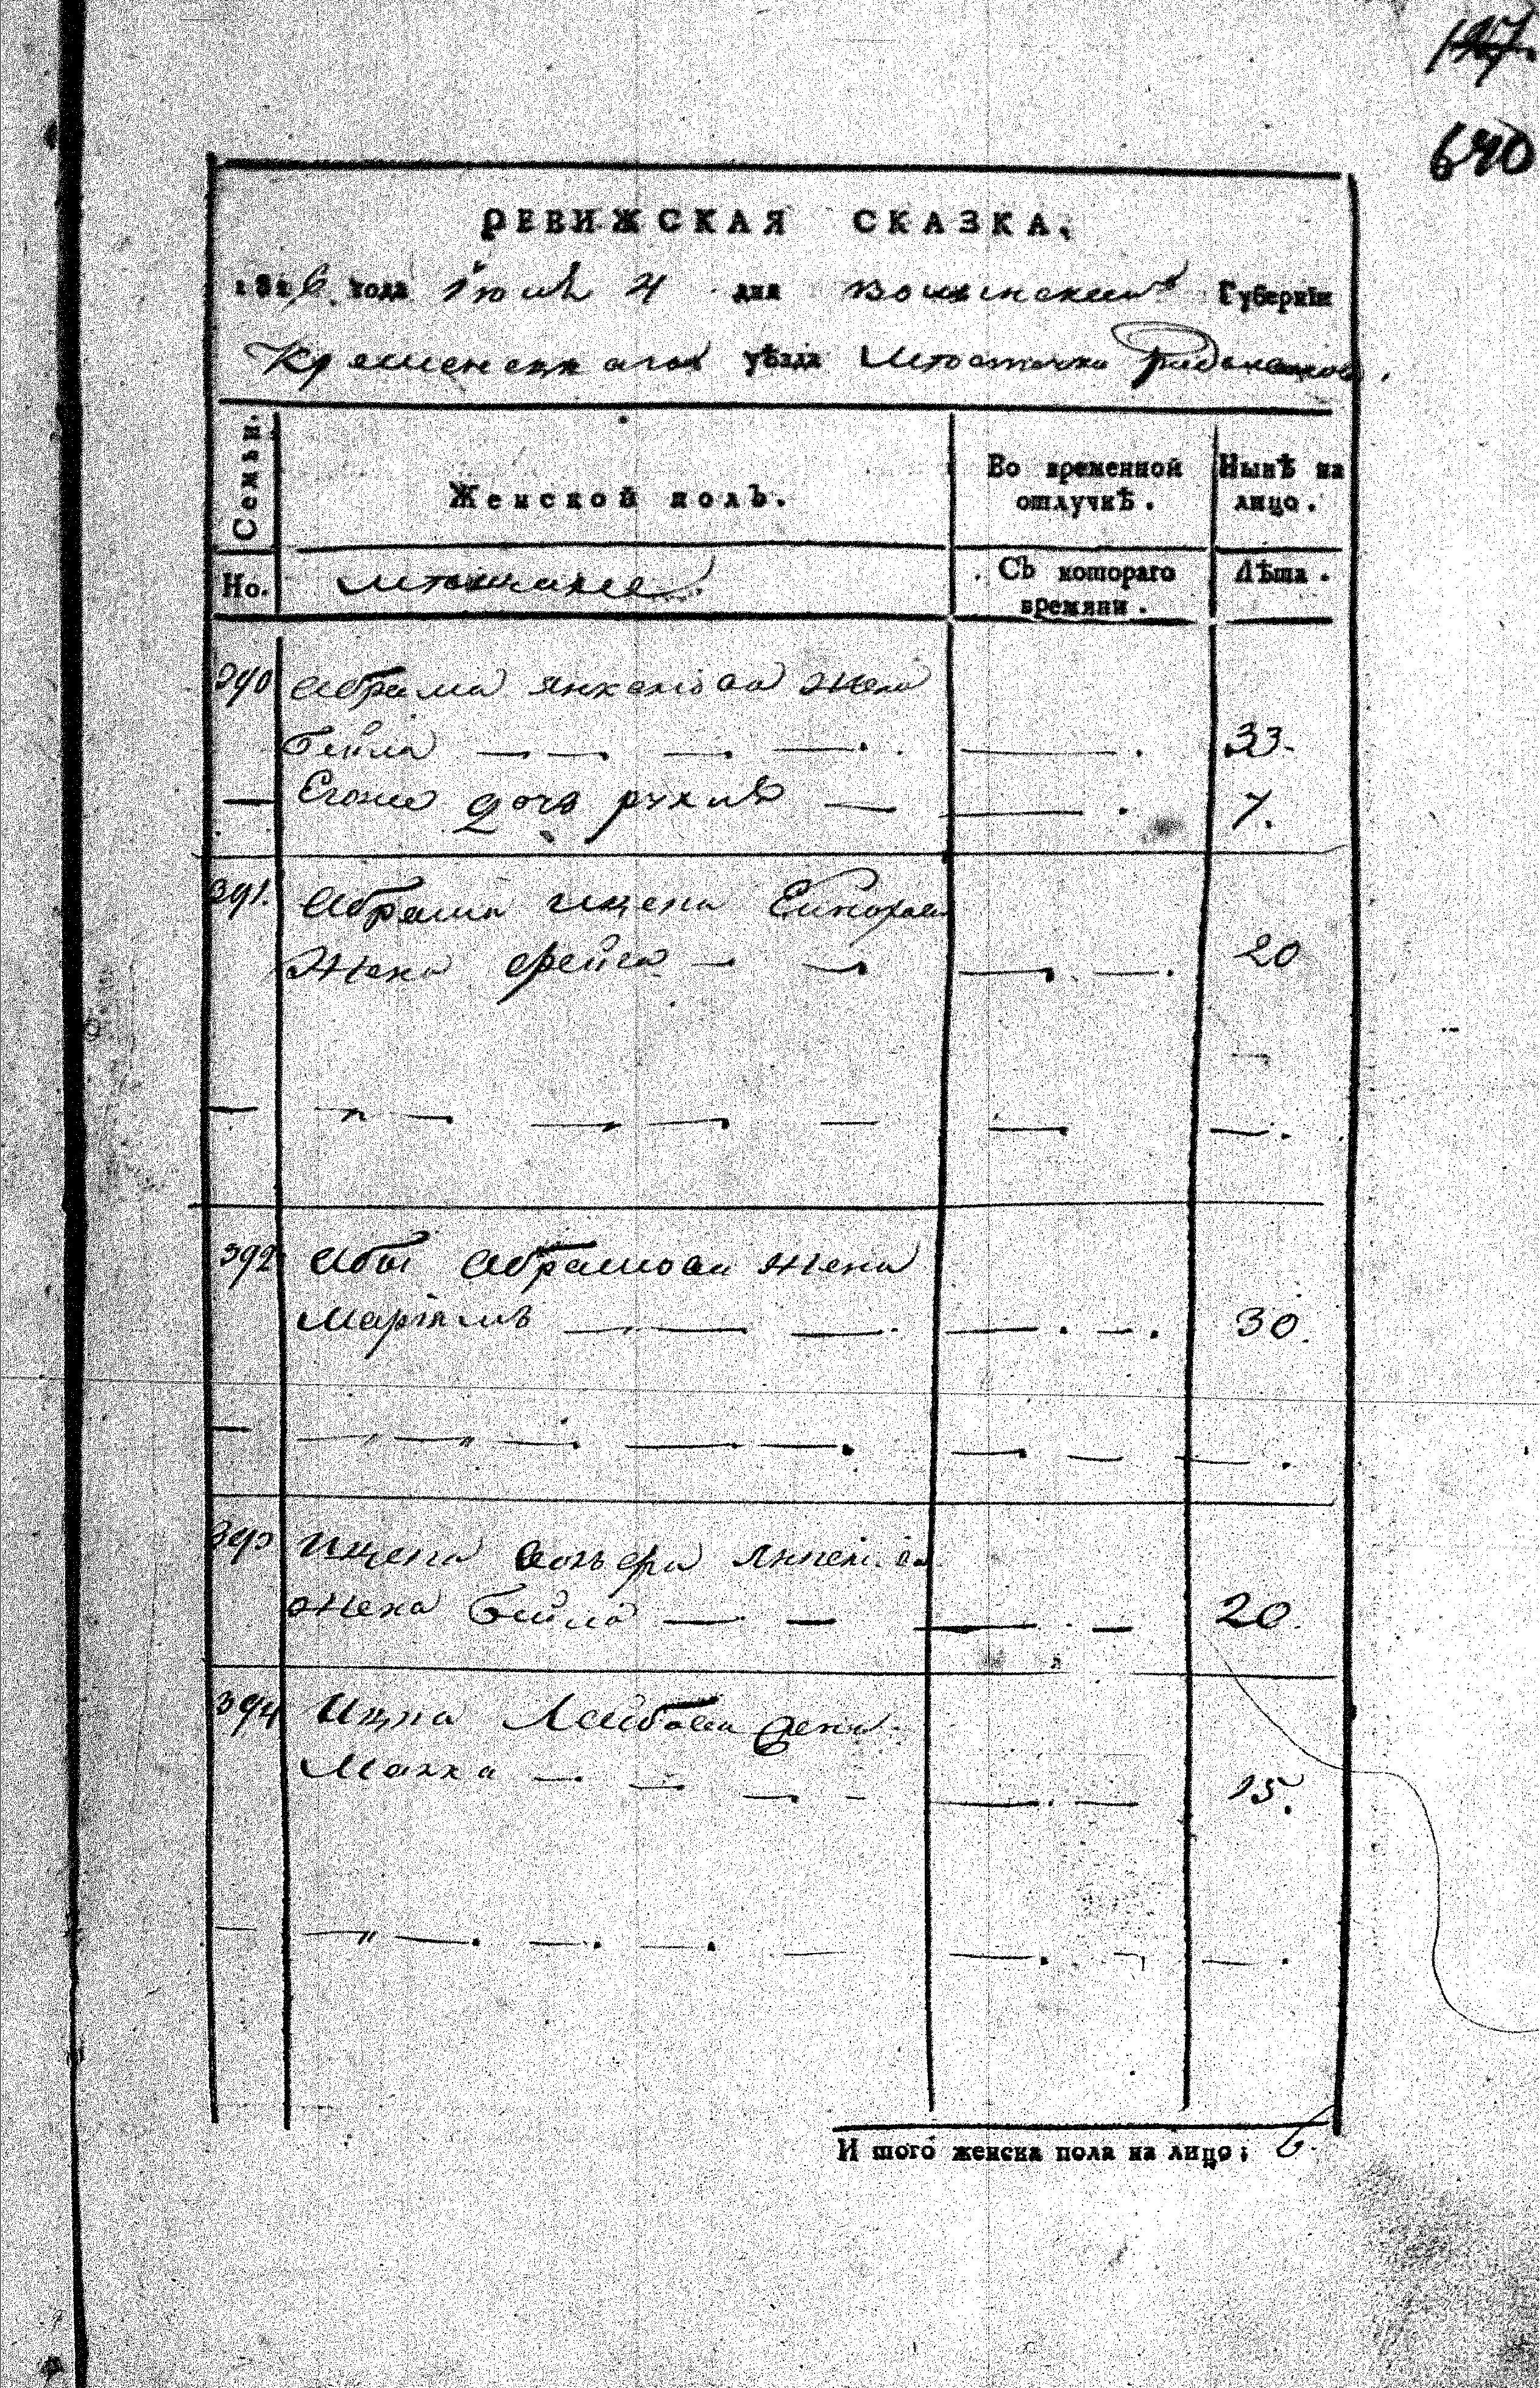 640
РЕВИЖСКАЯ СКАЗКА,
1816 года Июля 4 дня Волынской Губернїи
Кременецкаго уѣзда Мѣстечка
Семьи.
Женской полъ.
Во временной отлучкѣ.
Нынѣ на лицо.
Но.
Мѣщане
Съ котораго времяни.
Лѣта.
390 Абрама Янкелюва жена
Бейла 33
Егоже дочь рухля 7.
391. Абрама Ицека
Жена Фейга 20
392 Абы Абрамова жена
Маріямъ 30.
393 Ицека
жена Бейла 20.
394 Ицка Лейбова жена
Малка 15.
И того женска пола на лицо; 6.